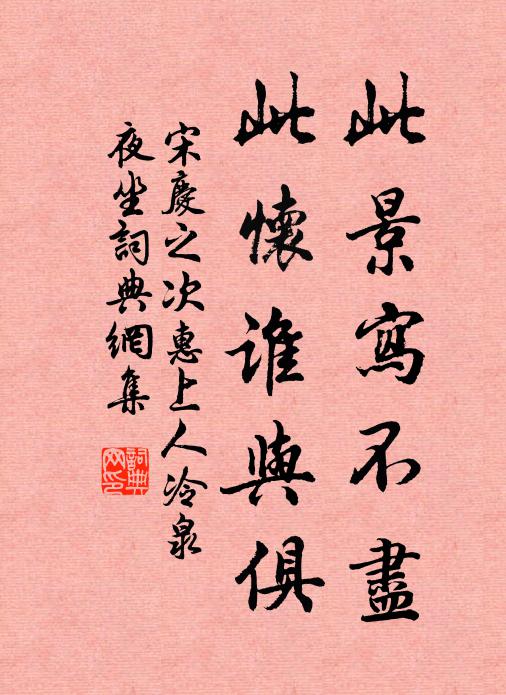 此景寫不盡
此懷誰與俱
宋慶之次惠上人冷泉
夜坐詞典網集
詞典
网印